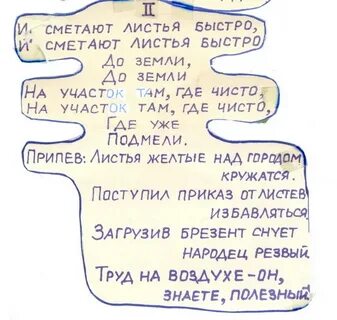 II
И СМЕТАЮТ ЛИСТЬЯ БЫСТРО,
И СМЕТАЮТ ЛИСТЬЯ БЫСТРО
ДО ЗЕМЛИ,
ДО ЗЕМЛИ
НА УЧАСТОК ТАМ, ГДЕ ЧИСТО,
НА УЧАСТОК ТАМ, ГДЕ ЧИСТО,
ГДЕ УЖЕ
ПОДМЕЛИ.
ПРИПЕВ: ЛИСТЬЯ ЖЕЛТЫЕ НАД ГОРОДОМ
КРУЖАТСЯ.
ПОСТУПИЛ ПРИКАЗ ОТ ЛИСТЕВ
ИЗБАВЛЯТЬСЯ
ЗАГРУЗИВ БРЕЗЕНТ СНУЕТ
НАРОДЕЦ РЕЗВЫЙ
ТРУД НА ВОЗДУХЕ-ОН,
ЗНАЕТЕ, ПОЛЕЗНЫЙ